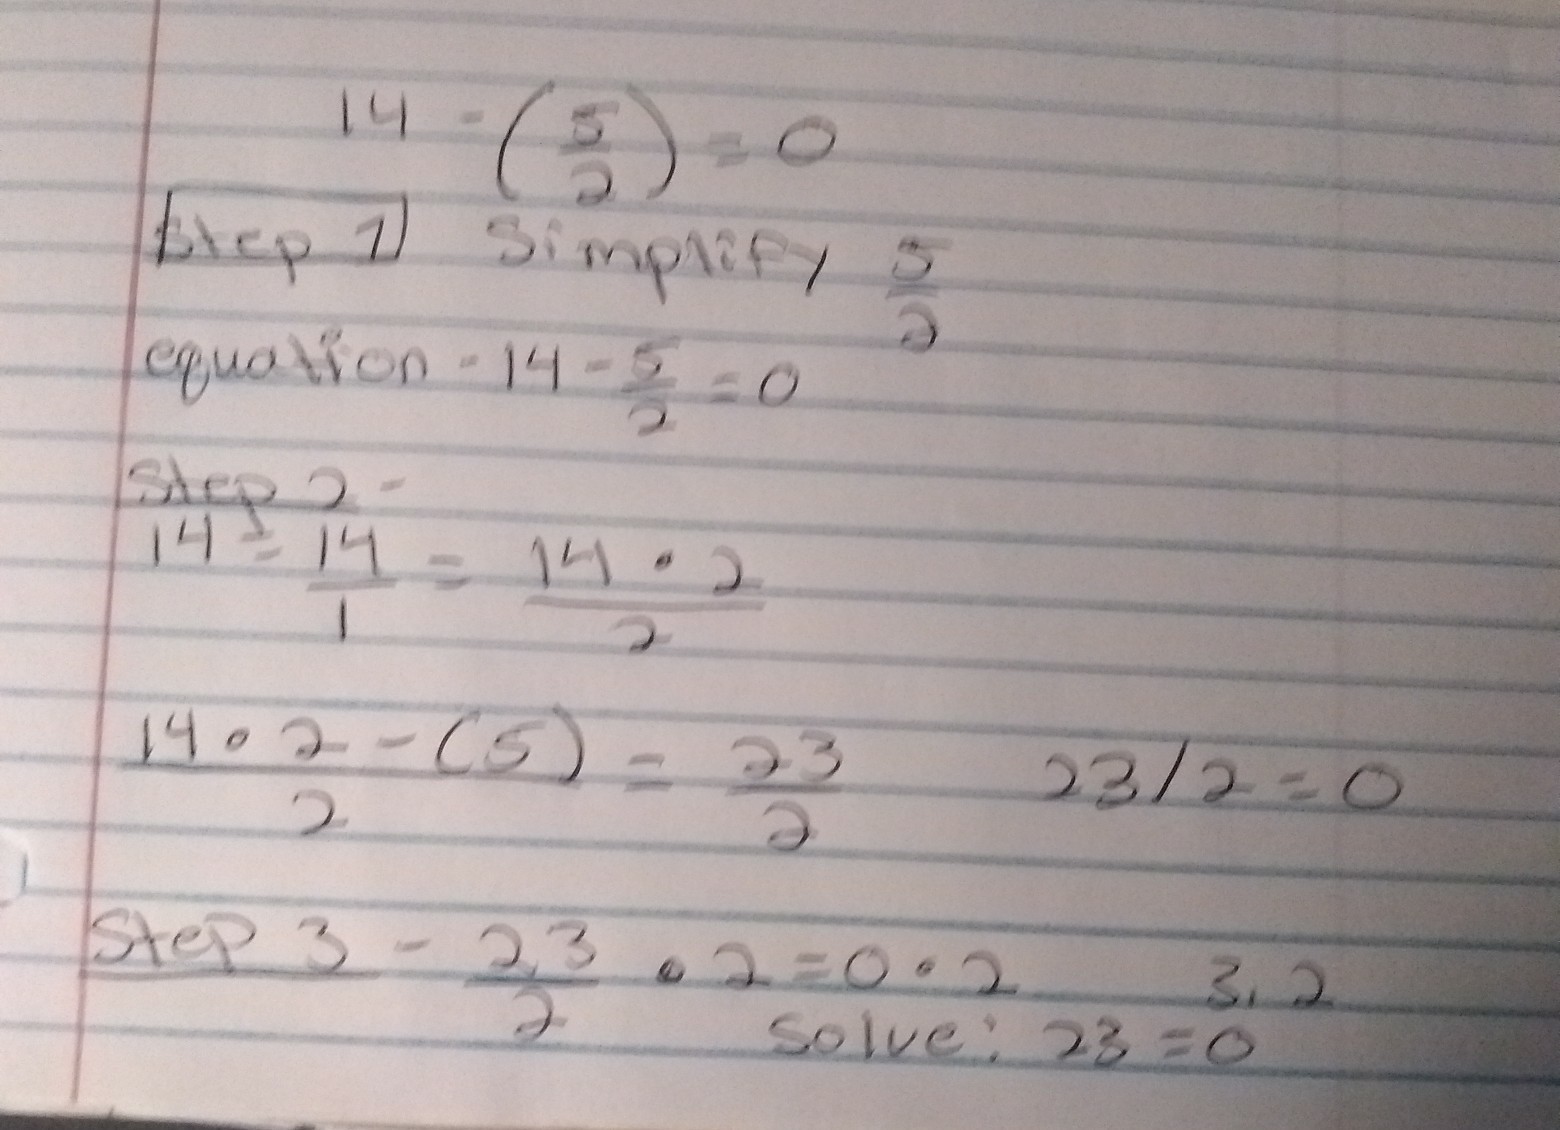 14 - (5/2) = 0
Step 1) Simplify 5/2
equation - 14 - 5/2 = 0
Step 2 -
14 = 14/1 = 14 • 2/2
14 • 2 - (5)/2 = 23/2 23/2 = 0
Step 3 - 23/2 • 2 = 0 • 2 3.2
Solve: 23 = 0